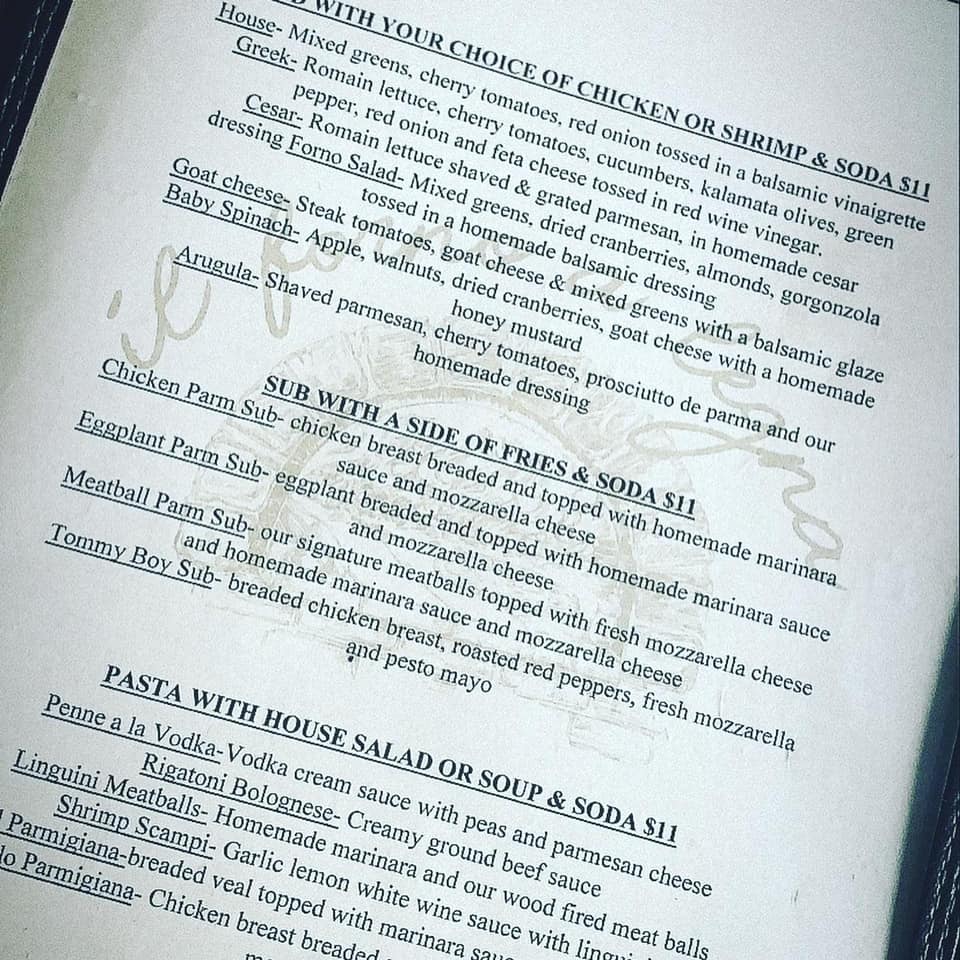 WITH YOUR CHOICE OF CHICKEN OR SHRIMP & SODA $11
House- Mixed greens, cherry tomatoes, red onion tossed in a balsamic vinaigrette
Greek- Romain lettuce, cherry tomatoes, cucumbers, kalamata olives, green
pepper, red onion and feta cheese tossed in red wine vinegar.
Cesar- Romain lettuce shaved & grated parmesan, in homemade cesar
dressing Forno Salad- Mixed greens, dried cranberries, almonds, gorgonzola
tossed in a homemade balsamic dressing
Goat cheese- Steak tomatoes, goat cheese & mixed greens with a balsamic glaze
Baby Spinach- Apple, walnuts, dried cranberries, goat cheese with a homemade
honey mustard
Arugula- Shaved parmesan, cherry tomatoes, prosciutto de parma and our
homemade dressing
SUB WITH A SIDE OF FRIES & SODA $11
Chicken Parm Sub- chicken breast breaded and topped with homemade marinara
sauce and mozzarella cheese
Eggplant Parm Sub- eggplant breaded and topped with homemade marinara sauce
and mozzarella cheese
Meatball Parm Sub- our signature meatballs topped with fresh mozzarella cheese
and homemade marinara sauce and mozzarella cheese
Tommy Boy Sub- breaded chicken breast, roasted red peppers, fresh mozzarella
and pesto mayo
PASTA WITH HOUSE SALAD OR SOUP & SODA $11
Penne a la Vodka-Vodka cream sauce with peas and parmesan cheese
Rigatoni Bolognese- Creamy ground beef sauce
Linguini Meatballs- Homemade marinara and our wood fired meat balls
Shrimp Scampi- Garlic lemon white wine sauce with
Parmigiana-breaded veal topped with marinara
Parmigiana- Chicken breast breaded